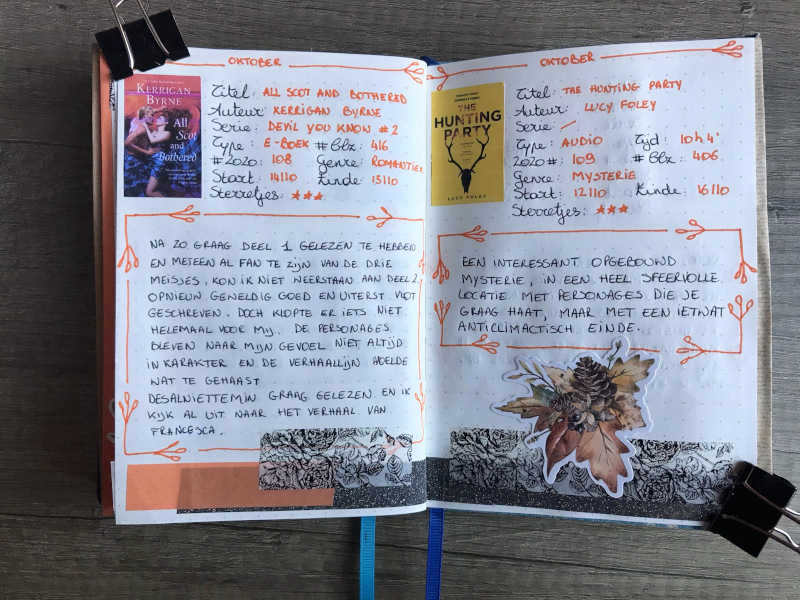 OKTOBER
KERRIGAN
BYRNE
All
Scot
and
Bothered
Titel: ALL SCOT AND BOTHERED
Auteur: KERRIGAN BYRNE
Serie: DEVIL YOU KNOW #2
Type: E-BOEK # Blz: 416
#2020: 108 Genre: ROMANTIEK
Start: 14|10 Einde: 15|10
Sterretjes: ★★★
NA ZO GRAAG DEEL 1 GELEZEN TE HEBBEN
EN METEEN AL FAN TE ZIJN VAN DE DRIE
MEISJES, KON IK NIET WEERSTAAN AAN DEEL 2.
OPNIEUW GEWELDIG GOED EN UITERST VLOT
GESCHREVEN. DOCH KLOPTE ER IETS NIET
HELEMAAL VOOR MIJ. DE PERSONAGES
BLEVEN NAAR MIJN GEVOEL NIET ALTIJD
IN KARAKTER EN DE VERHAALLIJN VOELDE
WAT TE GEHAAST
DESALNIETTEMIN GRAAG GELEZEN EN IK
KIJK AL UIT NAAR HET VERHAAL VAN
FRANCESCA.
OKTOBER
THE
HUNTING
PARTY
LUCY FOLEY
Titel: THE HUNTING PARTY
Auteur: LUCY FOLEY
Serie: /
Type: AUDIO Tijd: 10h 4'
2020#: 109 # Blz: 406
Genre: MYSTERIE
Start: 12|10 Einde: 16|10
Sterretjes: ★★★
EEN INTERESSANT OPGEBOUWD
MYSTERIE, IN EEN HEEL SFEERVOLLE
LOCATIE MET PERSONAGES DIE JE
GRAAG HAAT, MAAR MET EEN IETWAT
ANTICLIMACTISCH EINDE.